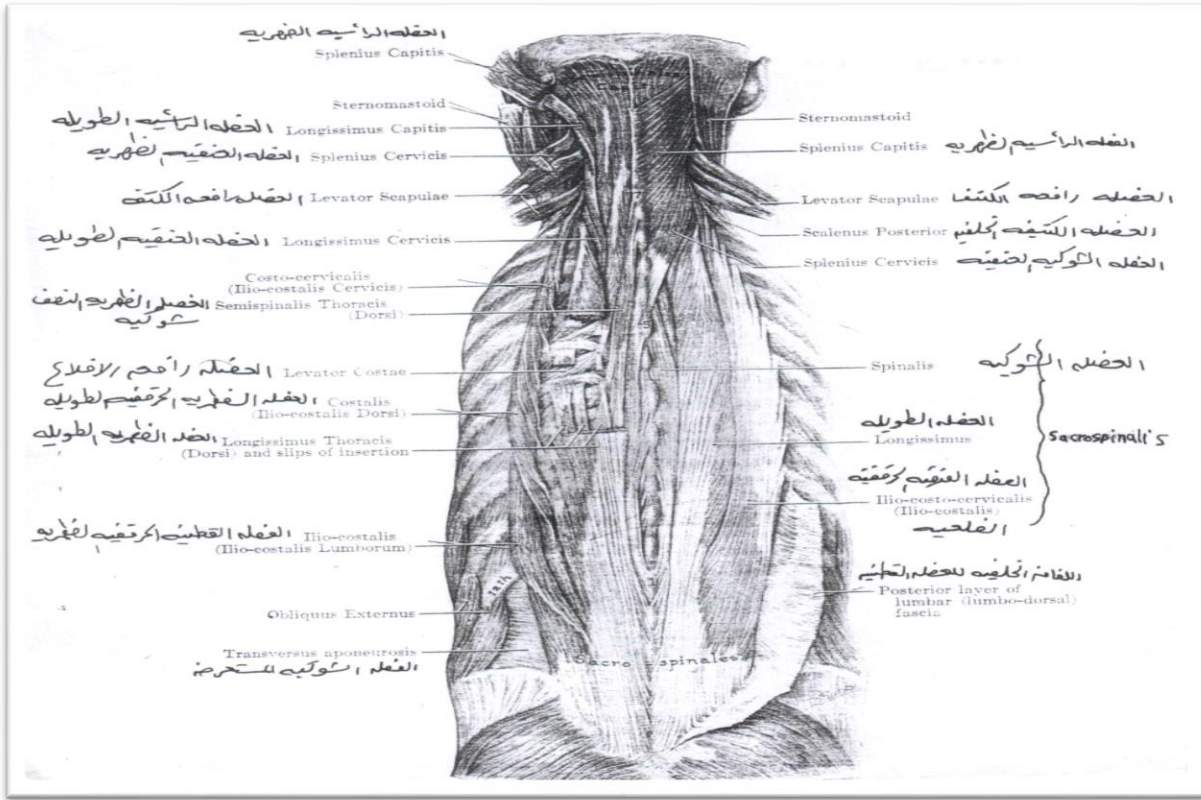 العضله الرأسيه الظهريه
Splenius Capitis
Sternomastoid
العضله الرأسيه الطويله Longissimus Capitis
العضله العنقيه لظهريه Splenius Cervicis
العضله رافعه الكتف Levator Scapulae
العضله العنقيه لطويله Longissimus Cervicis
Costo-cervicalis
(Ilio-costalis Cervicis)
العضله الظهريه النصف Semispinalis Thoracis
شوكيه (Dorsi)
العضله رافعه الاضلاع Levator Costae
العضله الظهريه الحرقفيه لطويله Costalis
(Ilio-costalis Dorsi)
العضله الظهريه الطويله Longissimus Thoracis
(Dorsi) and slips of insertion
العضله القطنيه الحرقفيه لظهريه Ilio-costalis
(Ilio-costalis Lumborum)
12th
Obliquus Externus
Transversus aponeurosis
العضله الشوكيه المستعرضه
Sacro spinales
Sternomastoid
Splenius Capitis العضله الرأسيه لظهريه
Levator Scapulae العضله رافعه الكتف
Scalenus Posterior العضله الكتفيه الخلفيه
Splenius Cervicis العضله الشوكيه لعنقيه
Spinalis العضله الشوكيه
العضله الطويله
Longissimus
Sacrospinalis
العضله العنقيه لحرقفيه
Ilio-costo-cervicalis
(Ilio-costalis)
الضلعيه
اللفافه الخلفيه للعضله القطنيه
Posterior layer of
lumbar (lumbo-dorsal)
fascia